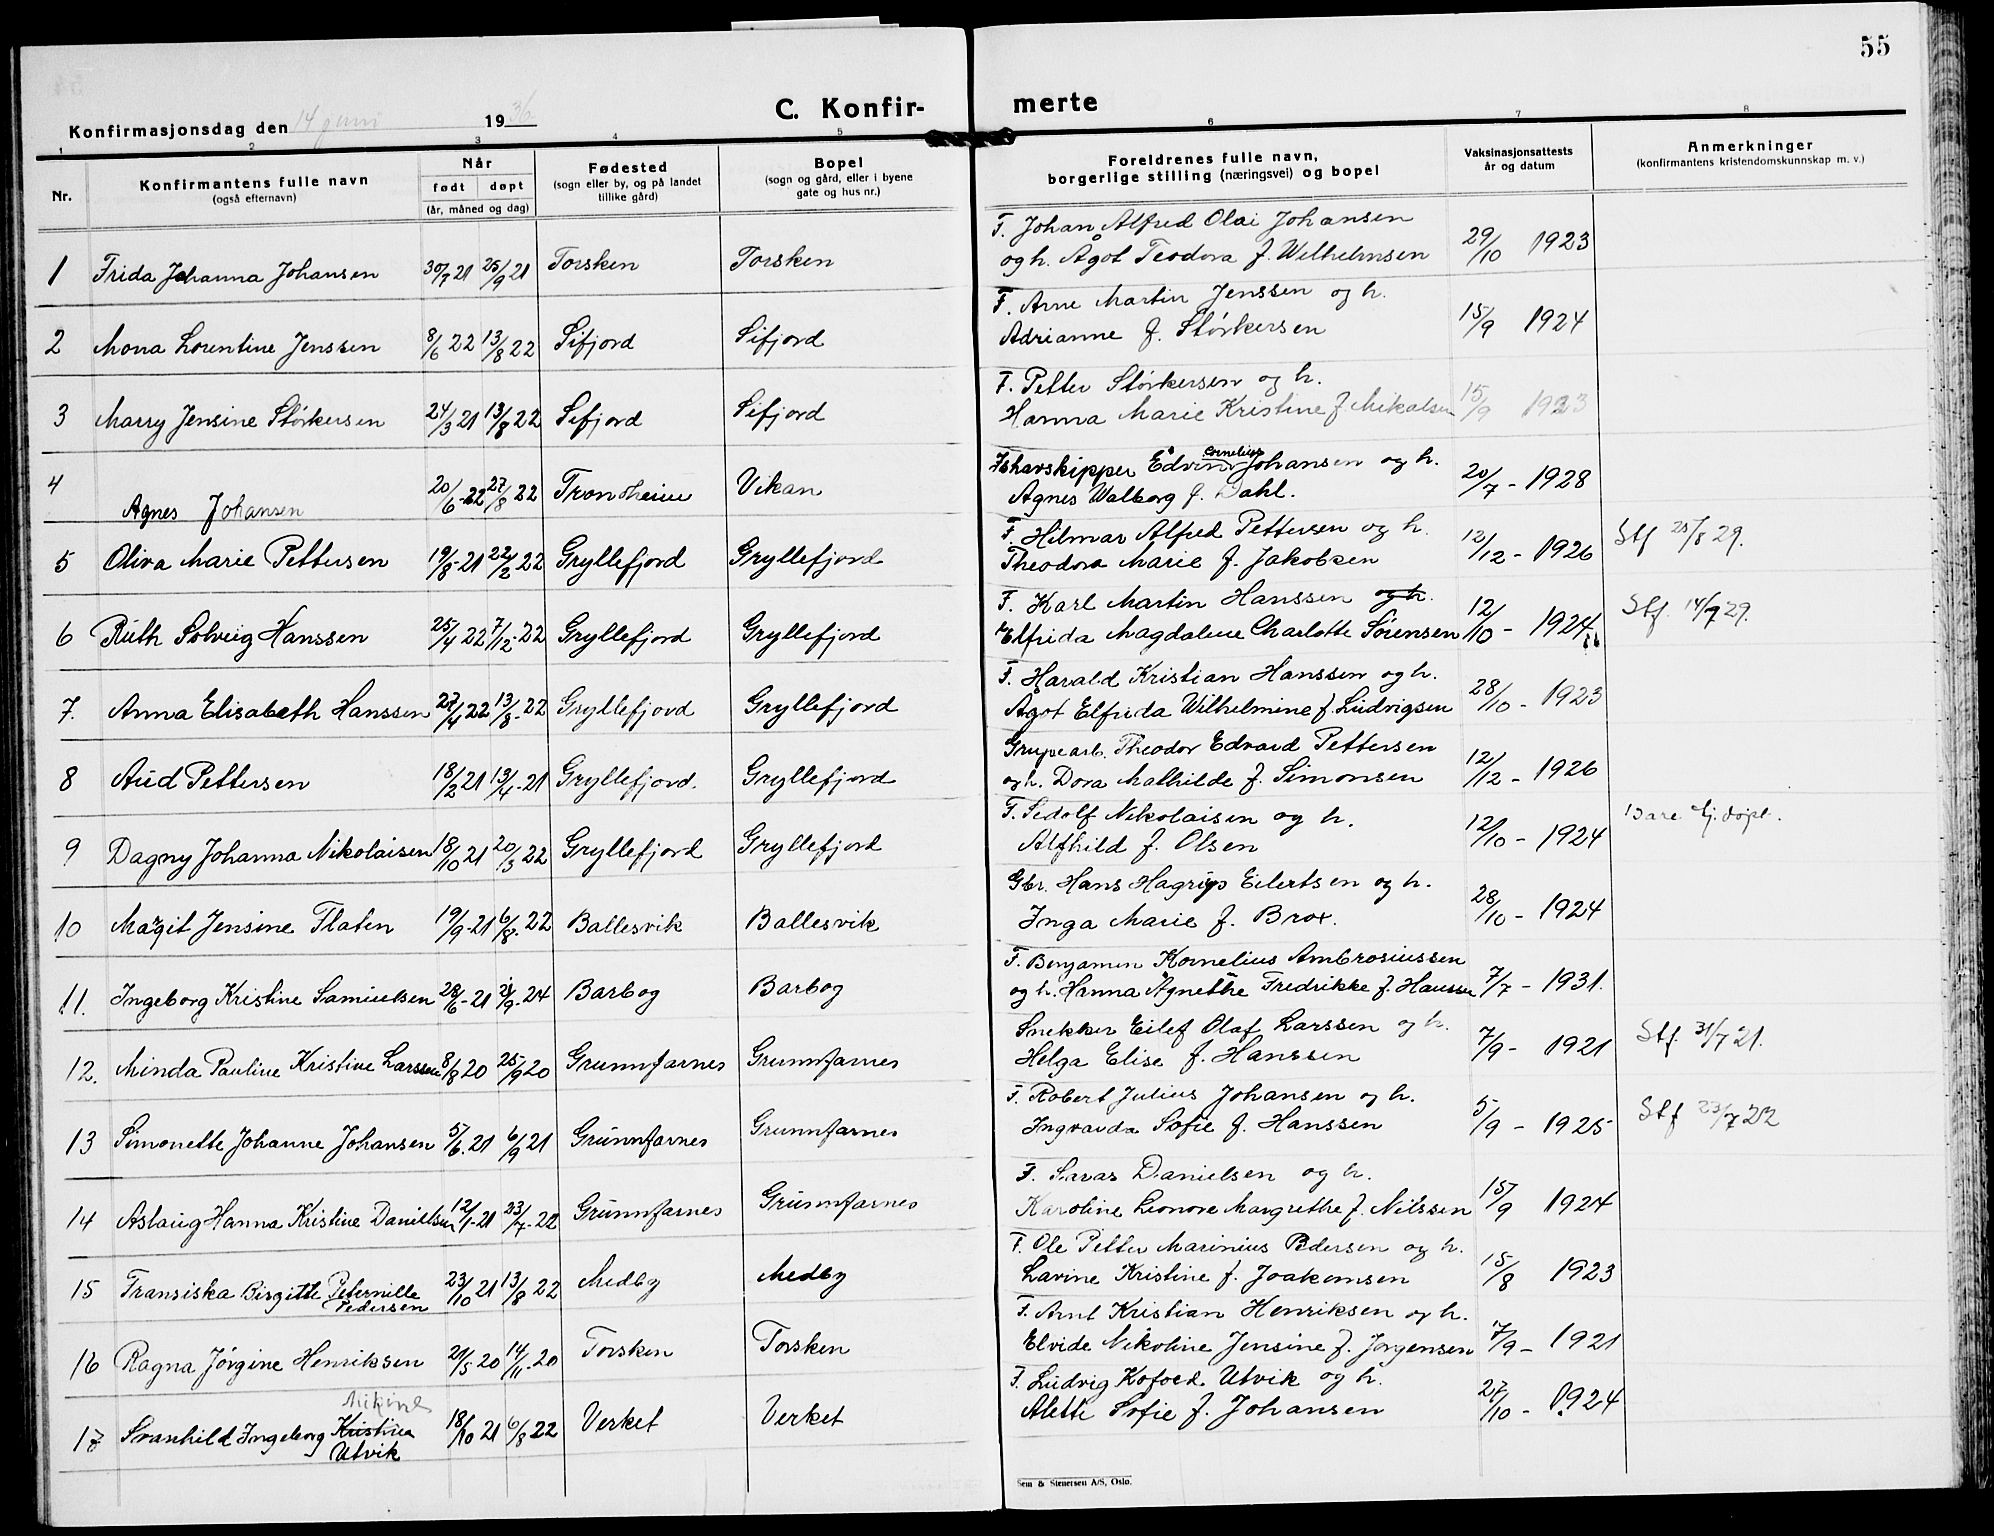 55
C. Konfir- merte
Konfirmasjonsdag den 14 juni 1936
1 2 3 4 5 6 7 8
Nr.
Konfirmantens fulle navn
(også efternavn)
Når
født døpt
(år, måned og dag)
Fødested
(sogn eller by, og på landet
tillike gård)
Bopel
(sogn og gård, eller i byene
gate og hus nr.)
Foreldrenes fulle navn,
borgerlige stilling (næringsvei) og bopel
Vaksinasjonsattests
år og datum
Anmerkninger
(konfirmantens kristendomskunnskap m. v.)
1 Frida Johanna Johansen 30/7 21 25/9 21 Torsken Torsken
F. Johan Alfred Olai Johansen
og h. Ågot Teodora f. Wilhelmsen 29/10 1923
2 Mona Lorentine Jenssen 8/6 22 13/8 22 Sifjord Sifjord
F. Arne Martin Jenssen og h.
Adrianne f. Størkersen 15/9 1924
3 Marry Jensine Størkersen 24/3 21 13/8 22 Sifjord Sifjord
F. Petter Størkersen og h.
Hanna Marie Kristine f. Mikalsen 15/9 1923
4 Agnes Johansen 20/6-22 27/8 22 Trondheim Vikan
Ishavskipper Edvin Cornelius Johansen og h.
Agnes Walborg f. Dahl. 20/7 - 1928
5 Oliva Marie Pettersen 19/8-21 22/2 22 Gryllefjord Gryllefjord
F. Hilmar Alfred Pettersen og h.
Theodora Marie f. Jakobsen 12/12 - 1926 Stf 25/8 29.
6 Ruth Solveig Hanssen 25/4 22 7/12-22 Gryllefjord Gryllefjord
F. Karl Martin Hanssen og h.
Elfrida Magdalene Charlotte Sørensen 12/10 - 1924 Stf. 14/7 29.
7. Anna Elisabeth Hanssen 27/4 22 13/8-22 Gryllefjord Gryllefjord
F. Harald Kristian Hanssen og h.
Ågot Elfrida Wilhelmine f. Ludvigsen 28/10 - 1923
8 Aud Pettersen 18/2 21 13/4-21 Gryllefjord. Gryllefjord
Grupearb. Theodor Edvard Pettersen
og h. Dora Mathilde f. Simonsen 12/12 - 1926
9 Dagny Johanna Nikolaisen 18/10 21 20/3 22 Gryllefjord Gryllefjord
F. Sedolf Nikolaisen og h.
Alfhild f. Olsen 12/10 - 1924 Bare hj. døpt.
10 Margit Jensine Flaten 19/9-21 6/8-22 Ballesvik Ballesvik
Gbr. Hans Hagrup Eilertsen og h.
Inga Marie f. Brox. 28/10 - 1924
11. Ingeborg Kristine Samuelsen 28/6-21 21/9-24 Barbog Barbog
F. Benjamin Kornelius Ambrosiussen
og h. Hanna Agnethe Fredrikke f. Hanssen 7/7 - 1931.
12. Minda Pauline Kristine Larssen 8/8 20 25/9 20 Grunnfarnes Grunnfarnes
Snekker Eilef Olaf Larssen og h.
Helga Elise f. Hanssen 7/9 - 1921 Stf. 31/7 21.
13 Simonette Johanne Johansen 5/6.21 6/9 21 Grunnfarnes Grunnfarnes
F. Robert Julius Johansen og h.
Ingvarda Sofie f. Hanssen 5/9 - 1925 Stf 23/7 22
14 Aslaug Hanna Kristine Danielsen 12/1-21 23/7-22 Grunnfarnes Grunnfarnes
F. Savas Danielsen og h.
Karoline Leonore Margrethe f. Nilssen 15/9 1924
15 Fransiska Birgitte Peternille
Pedersen 23/10 21 13/8 22 Medby Medby
F. Ole Petter Marinius Pedersen og h.
Lavine Kristine f. Joakemsen 15/8 1923
16 Ragna Jørgine Henriksen 21/5 20 14/11-20 Torsken Torsken
F. Arnt Kristian Henriksen og h.
Elvide Nikoline Jensine f. Jørgensen 7/9 - 1921
17 Svanhild Ingeborg Kristina
Utvik 18/10 21 6/8 22 Verket Verket
F. Ludvig Kofoed. Utvik og h.
Alette Sofie f. Johansen 27/10 - 1924
Sem & Stenersen A/S, Oslo.